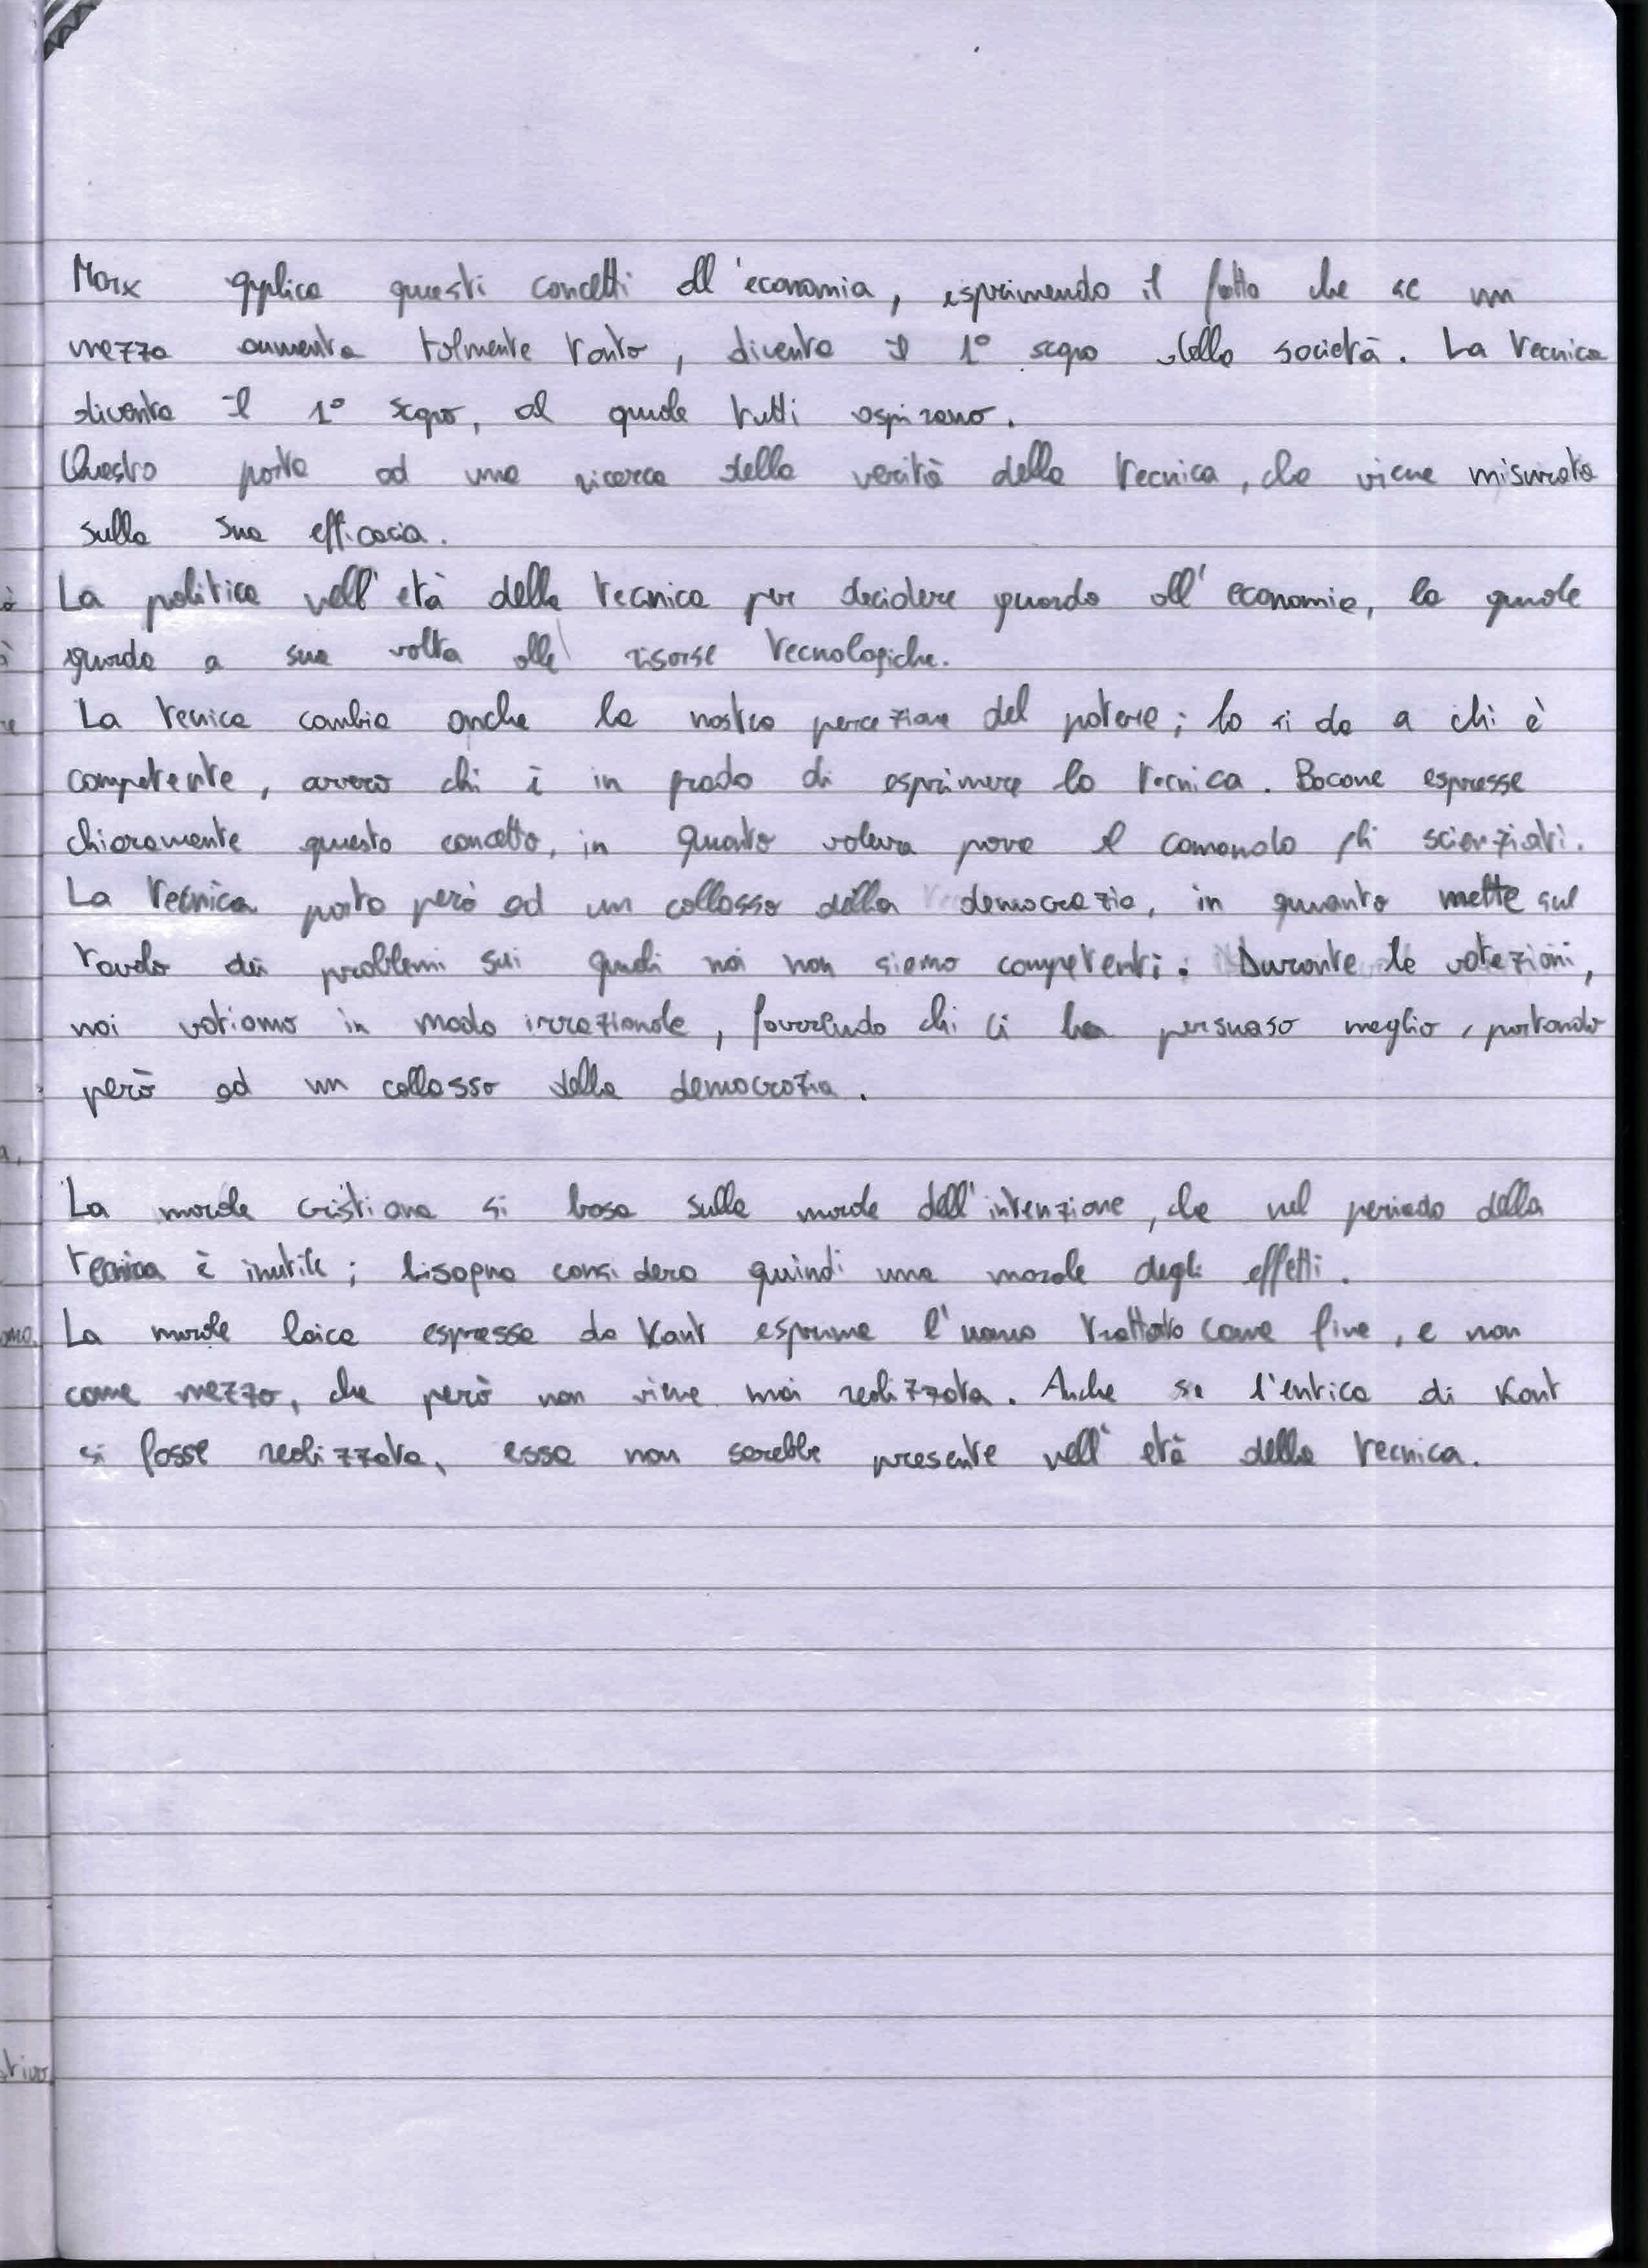 Marx applica questi concetti all'economia, esprimendo il fatto che se un
mezzo aumenta talmente tanto, diventa il 1° scopo della società. La tecnica
diventa il 1° scopo, al quale tutti aspirano.
Questo porta ad una ricerca della verità della tecnica, che viene misurata
sulla sua efficacia.
La politica nell'età della tecnica per decidere guarda all'economia, la quale
guarda a sua volta alle risorse tecnologiche.
La tecnica cambia anche la nostra percezione del potere; lo si da a chi è
competente, ovvero chi è in grado di esprimere la tecnica. Bacone espresse
chiaramente questo concetto, in quanto voleva porre al comando gli scienziati.
La tecnica porta però ad un collasso della democrazia, in quanto mette sul
tavolo dei problemi sui quali noi non siamo competenti. Durante le votazioni,
noi votiamo in modo irrazionale, favorendo chi ci ha persuaso meglio, portando
però ad un collasso della democrazia.
La morale cristiana si basa sulla morale dell'intenzione, che nel periodo della
tecnica è inutile; bisogna considera quindi una morale degli effetti.
La morale laica espressa da Kant esprime l'uomo trattato come fine, e non
come mezzo, che però non viene mai realizzata. Anche se l'entica di Kant
si fosse realizzata, essa non sarebbe presente nell'età della tecnica.